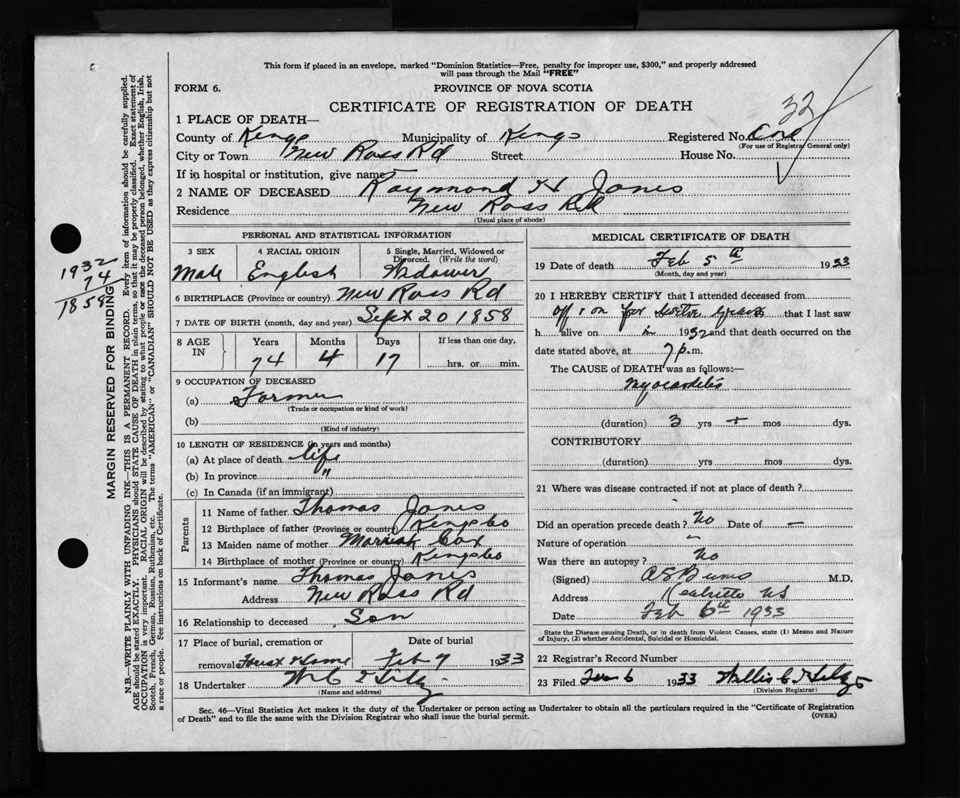 This form if placed in an envelope, marked "Dominion Statistics—Free, penalty for improper use, $300," and properly addressed
will pass through the Mail "FREE"
FORM 6.
PROVINCE OF NOVA SCOTIA
CERTIFICATE OF REGISTRATION OF DEATH
32
1 PLACE OF DEATH—
County of Kings Municipality of Kings Registered No.
(For use of Registrar General only)
City or Town New Ross Rd Street House No.
If in hospital or institution, give name
2 NAME OF DECEASED Raymond H Jones
Residence New Ross Rd
(Usual place of abode)
PERSONAL AND STATISTICAL INFORMATION
3 SEX 4 RACIAL ORIGIN 5 Single, Married, Widowed or
Divorced. (Write the word)
Male English Widower
6 BIRTHPLACE (Province or country) New Ross Rd
7 DATE OF BIRTH (month, day and year) Sept 20 1858
8 AGE IN Years Months Days If less than one day,
74 4 17 hrs. or min.
9 OCCUPATION OF DECEASED
(a) Farmer
(Trade or occupation or kind of work)
(b)
(Kind of industry)
10 LENGTH OF RESIDENCE (in years and months)
(a) At place of death life
(b) In province "
(c) In Canada (if an immigrant)
Parents
11 Name of father Thomas Jones
12 Birthplace of father (Province or country) Kings Co
13 Maiden name of mother Marriah Cox
14 Birthplace of mother (Province or country) Kings Co
15 Informant's name Thomas Jones
Address New Ross Rd
16 Relationship to deceased Son
17 Place of burial, cremation or Date of burial
removal Forest Home Feb 7 1933
18 Undertaker
(Name and address)
MEDICAL CERTIFICATE OF DEATH
19 Date of death Feb 5th 1933
(Month, day and year)
20 I HEREBY CERTIFY that I attended deceased from
off & on for twelve years that I last saw
h alive on 1932 and that death occurred on the
date stated above, at 7 p.m.
The CAUSE of DEATH was as follows:—
Myocarditis
(duration) 3 yrs + mos dys.
CONTRIBUTORY
(duration) yrs mos dys.
21 Where was disease contracted if not at place of death?
Did an operation precede death? No Date of —
Nature of operation
Was there an autopsy? No
(Signed) M.D.
Address NS
Date Feb 6th 1933
State the Disease causing Death, or in death from Violent Causes, state (1) Means and Nature
of Injury, (2) whether Accidental, Suicidal or Homicidal.
22 Registrar's Record Number
23 Filed 6 1933
(Division Registrar)
Sec. 46—Vital Statistics Act makes it the duty of the Undertaker or person acting as Undertaker to obtain all the particulars required in the "Certificate of Registration
of Death" and to file the same with the Division Registrar who shall issue the burial permit.
(OVER)
1932
74
1858
MARGIN RESERVED FOR BINDING
N.B.—WRITE PLAINLY WITH UNFADING INK—THIS IS A PERMANENT RECORD. Every item of information should be carefully supplied.
AGE should be stated EXACTLY. PHYSICIANS should STATE CAUSE OF DEATH in plain terms, so that it may be properly classified. Exact statement of
OCCUPATION is very important. RACIAL ORIGIN will be described by stating to what people or race the deceased person belonged, whether English, Irish,
Scotch, French, German, Russian, Ruthenian, etc. The terms "AMERICAN" or "CANADIAN" SHOULD NOT BE USED as they express citizenship but not
a race or people. See instructions on back of Certificate.